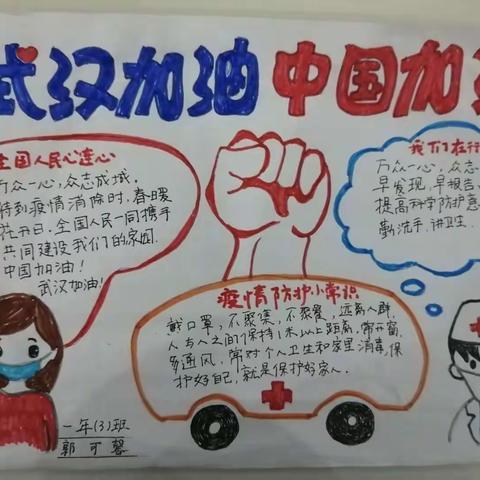 武汉加油 中国加
全国人民心连心
万众一心,众志成城。
待到疫情消除时,春暖
花开日,全国人民一同携手
共同建设我们的家园。
中国加油!
武汉加油!
我们在行
万众一心,众志
早发现,早报告,
提高科学防护意
勤洗手,讲卫生。
疫情防护小常识
戴口罩,不聚集,不聚餐,远离人群,
人与人之间保持1米以上距离,常开窗,
多通风,常对个人卫生和家里消毒,保
护好自己,就是保护好家人。
一年(3)班
郭可馨